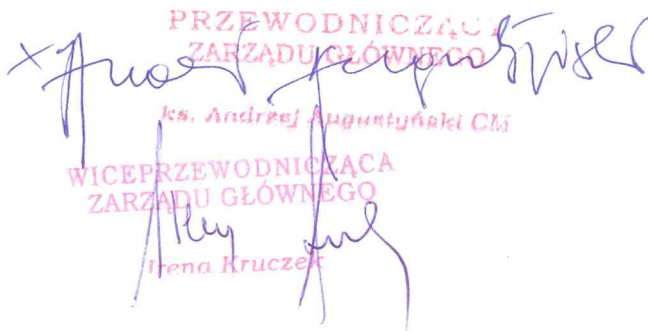 PRZEWODNICZĄCY
ZARZĄDU GŁÓWNEGO
ks. Andrzej Augustyński CM
WICEPRZEWODNICZĄCA
ZARZĄDU GŁÓWNEGO
Irena Kruczek